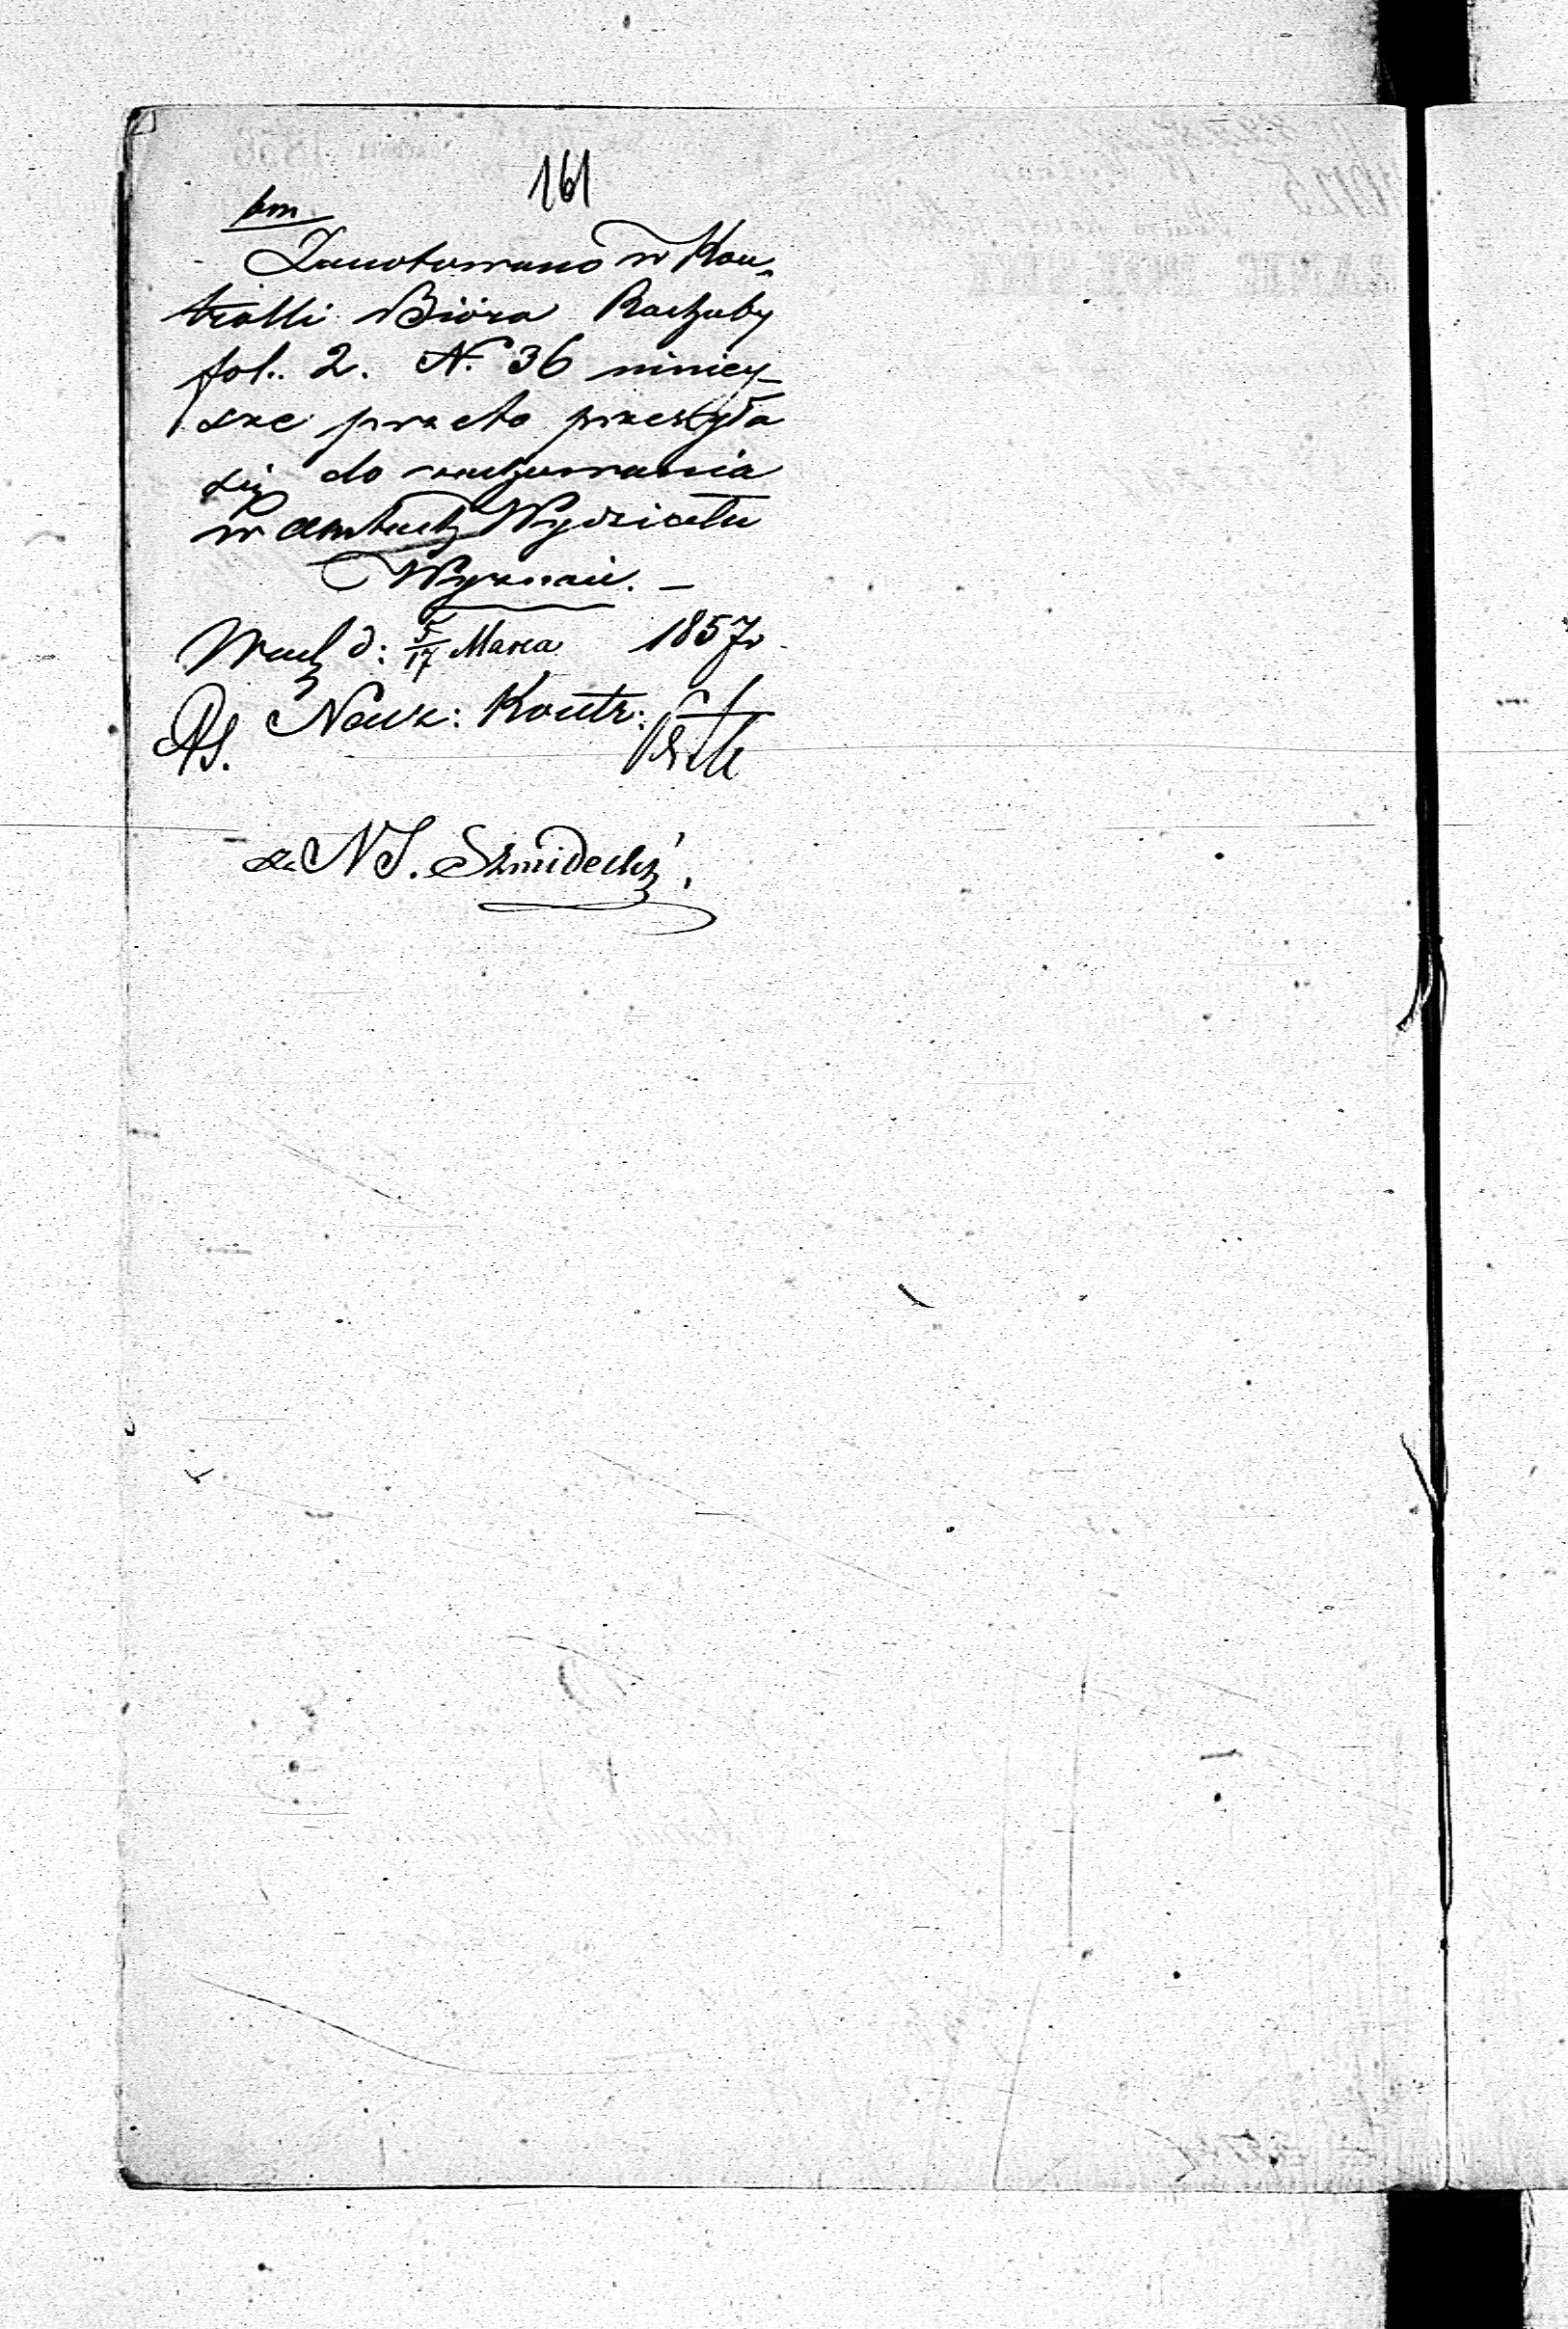 161
bm
Zanotowano w Kon„
trolli Bióra Rachuby
fol. 2. N. 36 niniey_
sze przeto przesyła
się do zachowania
w aktach Wydziału
Wyznań. —
W d: 5/17 Marca 1857 r
Nacz: Kontr:
za N S. Szmidecki